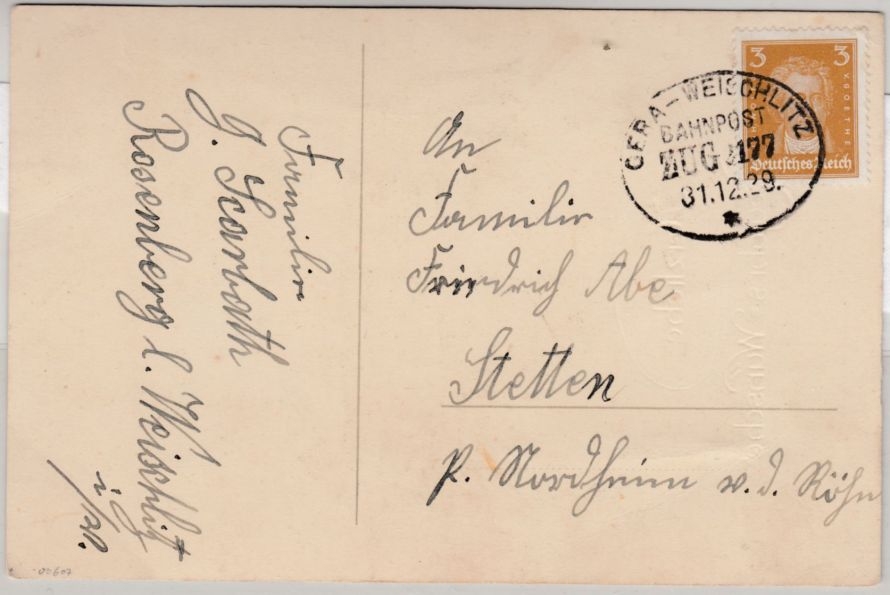 Familie
G. Scarbath
Rosenberg b. Weischlitz
i/V.
3 3
V. GOETHE
Deutsches Reich
GERA-WEISCHLITZ
BAHNPOST
ZUG 3177
31.12.29.
An
Familie
Friedrich Abe
Stetten
p. Nordheim v. d. Röhn
00607